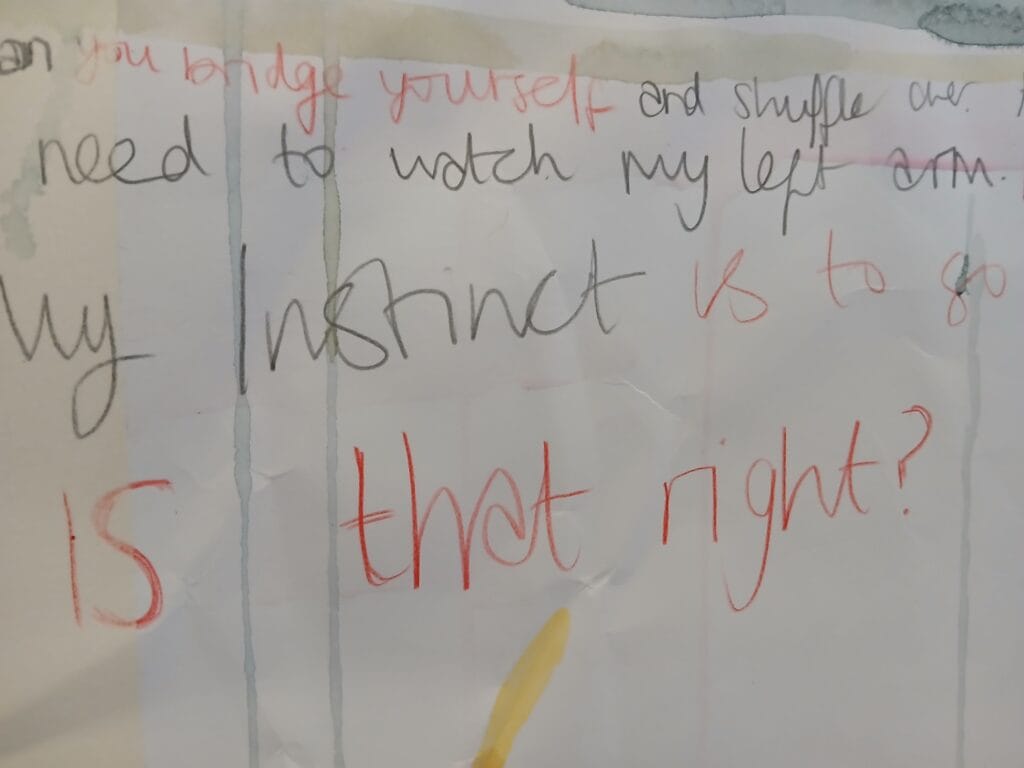 an you bridge yourself and shuffle over.
need to watch my left arm.
My Instinct is to go
IS that right?